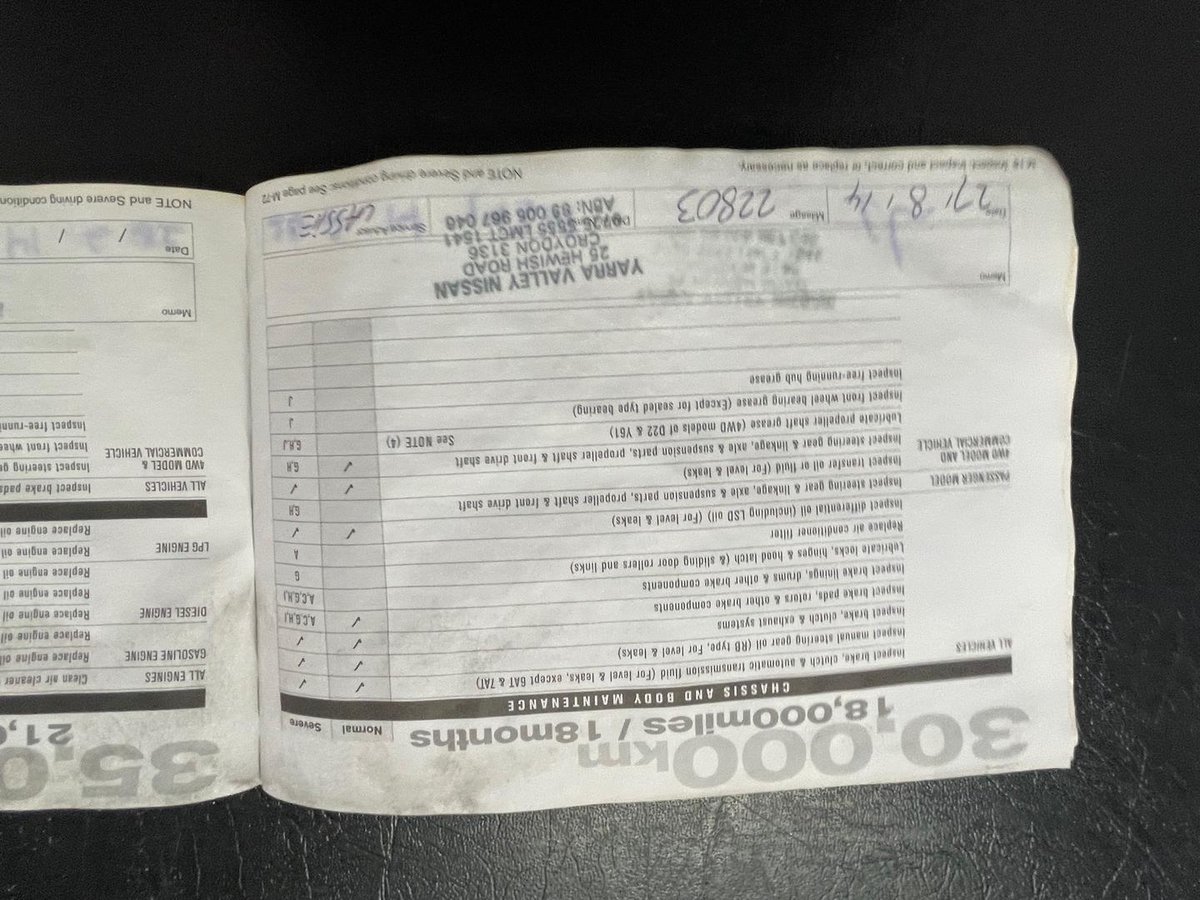 30,000km
18,000miles / 18months
Normal Severe
CHASSIS AND BODY MAINTENANCE
ALL VEHICLES Inspect brake, clutch & automatic transmission fluid (For level & leaks, except 6AT & 7AT) ✓ ✓
Inspect manual steering gear oil (RB type, For level & leaks) ✓ ✓
Inspect brake, clutch & exhaust systems ✓ ✓
Inspect brake pads, rotors & other brake components ✓ A,C,G,H,J
Inspect brake linings, drums & other brake components A,C,G,H,J
Lubricate locks, hinges & hood latch (& sliding door rollers and links) G
Replace air conditioner filter A
Inspect differential oil (including LSD oil) (For level & leaks) ✓ ✓
PASSENGER MODEL Inspect steering gear & linkage, axle & suspension parts, propeller shaft & front drive shaft G,H
4WD MODEL AND COMMERCIAL VEHICLE Inspect transfer oil or fluid (For level & leaks) ✓ ✓
Inspect steering gear & linkage, axle & suspension parts, propeller shaft & front drive shaft ✓ G,H
Lubricate propeller shaft grease (4WD models of D22 & Y61) See NOTE (4) G,H,J
Inspect front wheel bearing grease (Except for sealed type bearing) J
Inspect free-running hub grease J
Memo
YARRA VALLEY NISSAN
25 HEWISH ROAD
CROYDON 3136
LMCT 1541
ABN: 89 006 967 040
Date 27/8/14 Mileage 22803
Inspect: Inspect and correct, or replace as necessary.
NOTE and Severe driving conditions: See page M-72
35,0
21,
ALL ENGINES Clean air cleaner
GASOLINE ENGINE Replace engine oil
Replace engine oil
DIESEL ENGINE Replace engine oil
Replace engine oil
Replace engine oil
LPG ENGINE Replace engine oil
Replace engine oil
ALL VEHICLES Inspect brake pads
4WD MODEL & COMMERCIAL VEHICLE Inspect steering ge
Inspect front whee
Inspect free-runni
Memo
Date / /
NOTE and Severe driving condition